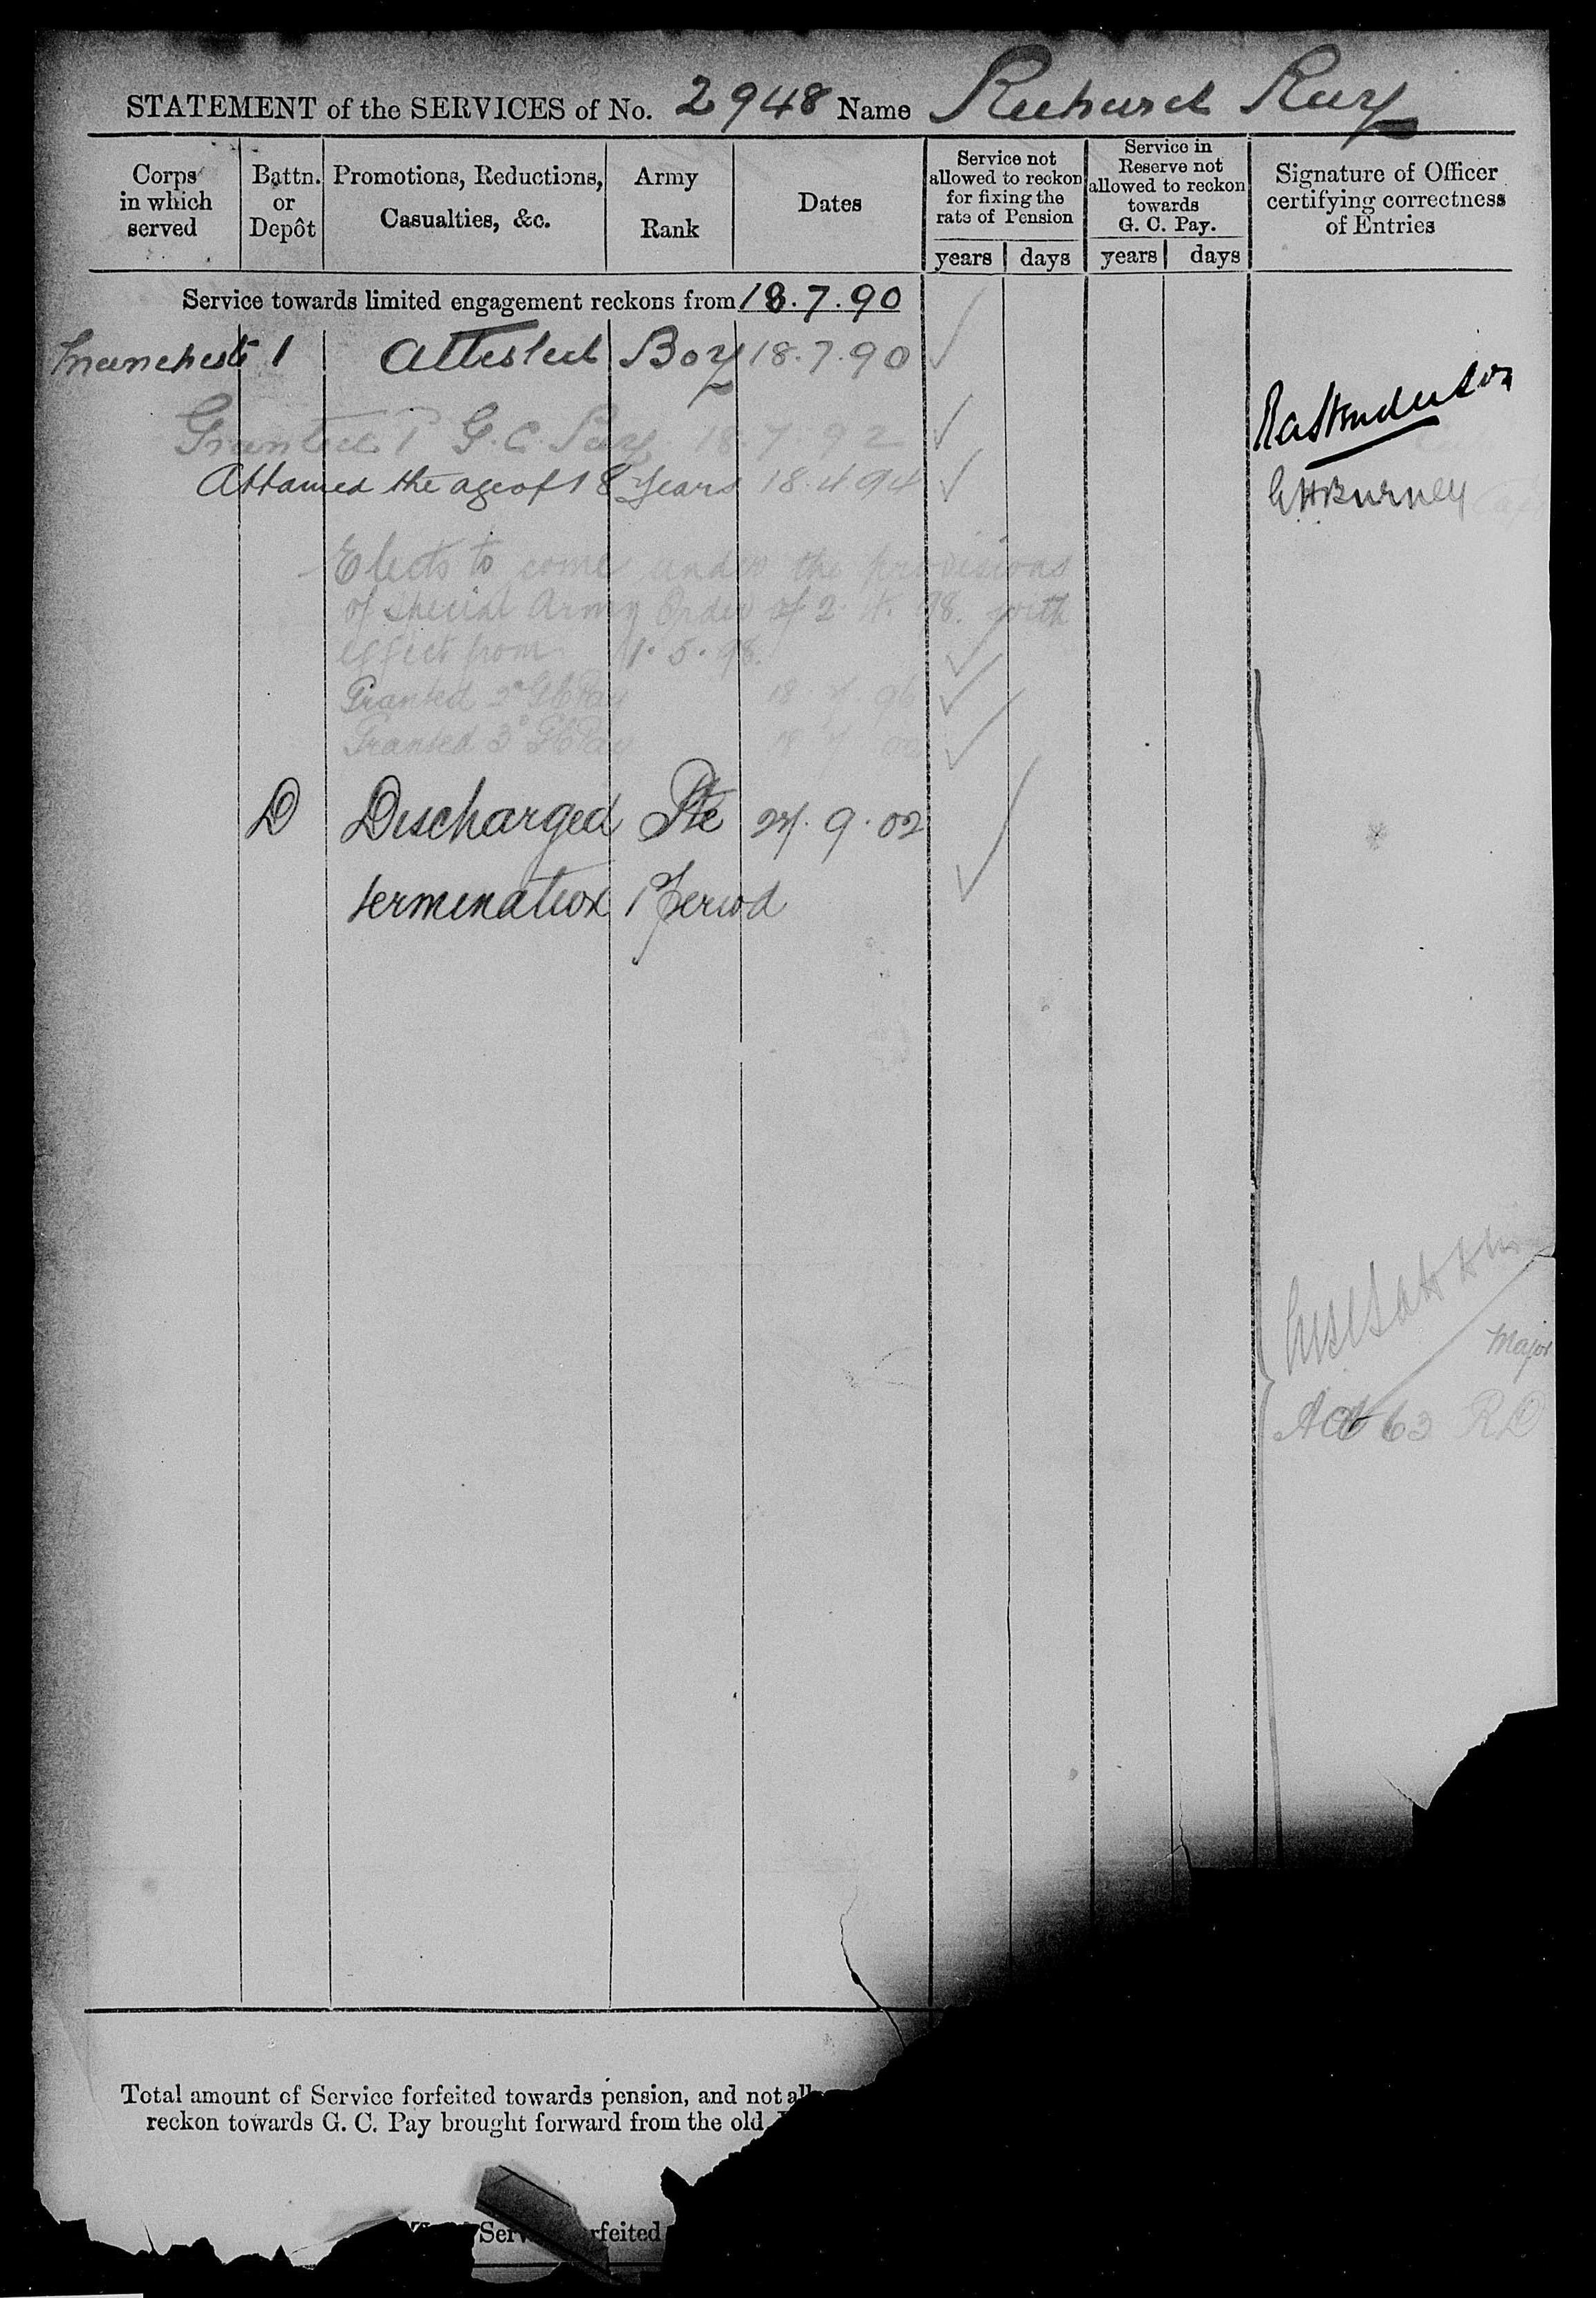 STATEMENT of the SERVICES of No. 2948 Name Richard Ray
Corps in which served
Battn. or Depôt
Promotions, Reductions, Casualties, &c.
Army Rank
Dates
Service not allowed to reckon for fixing the rate of Pension
years days
Service in Reserve not allowed to reckon towards G. C. Pay.
years days
Signature of Officer certifying correctness of Entries
Service towards limited engagement reckons from 18.7.90
Manchester 1 Attested Boy 18.7.90
Granted 1º G.C. Pay 18.7.92
Attained the age of 18 years 18.4.94
GHBurney
Elects to come under the provisions
of Special Army Order of 2. 4. 98. with
effect from 1.5.98.
Granted 2º GCPay 18 7 96
Granted 3º GCPay 18 7 02
D Discharged Pte 27.9.02
termination 1 Period
Major
63 RD
Total amount of Service forfeited towards pension, and not
reckon towards G. C. Pay brought forward from the old